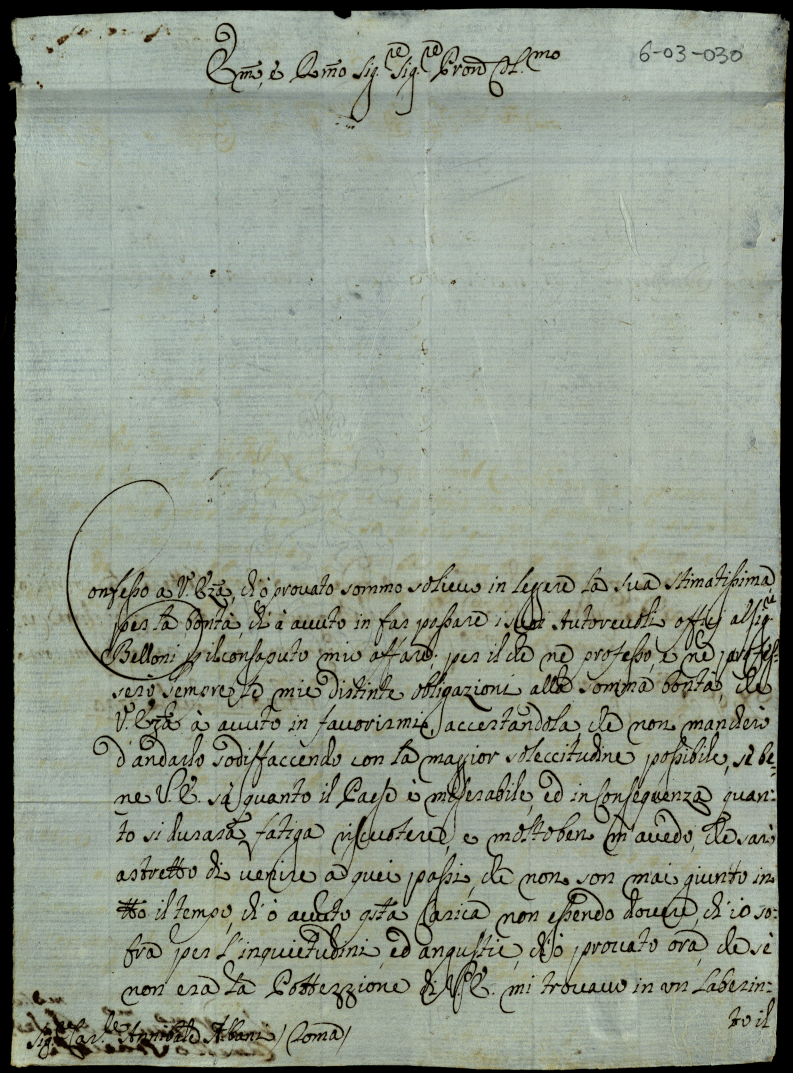 6-03-030
Em̃o, e Rm̃o Sig.re Sig.re Pron̄ Col.mo
Confesso a V. Eza, ch'ò provato sommo solievo in legere la sua stimatissima
per la bontà, ch'à avuto in far passare i suoi Autorevoli offizj al Sig.re
Belloni p il consaputo mio affare; per il che ne professo, e ne profes-
serò sempre le mie distinte obligazioni alla somma bontà, che
V. Eza à avuto in favorirmi, accertandola, che non mancherò
d'andarlo sodisfaccendo con la maggior soleccitudine possibile, sè be-
ne V. E. sà quanto il Paese è miserabile, ed in conseguenza quan-
to si durarà fatiga riscuotere, e molto ben m'avedo, che sarò
astretto di venire a quei passi, che non son mai giunto in
tto il tempo, ch'ò avuto qsta Carica non essendo dovere, ch'io so-
fra per l'inquietudini, ed angustie, ch'ò provato ora, che sè
non era la Pottezzione di V. E. mi trovavo in un Laberin-
to il
Sig.re Car.le Annibale Albani / Roma /